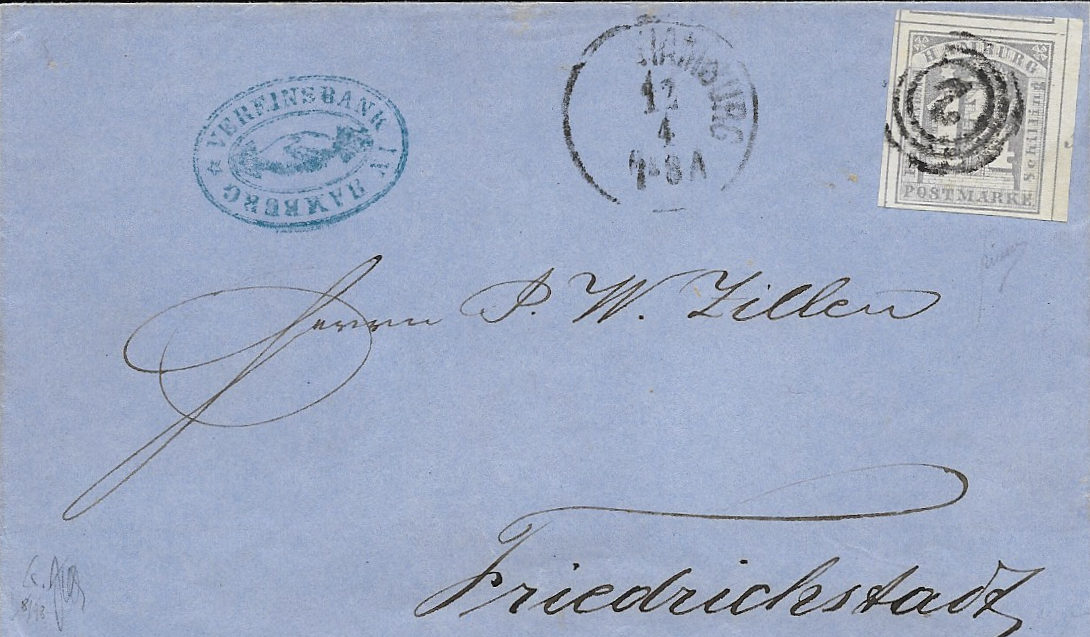 VEREINSBANK IN HAMBURG
HAMBURG
12
4
7-8A
HAMBURG
Schilling
POSTMARKE
2
Herrn P. W. Zillen
Friedrichstadt